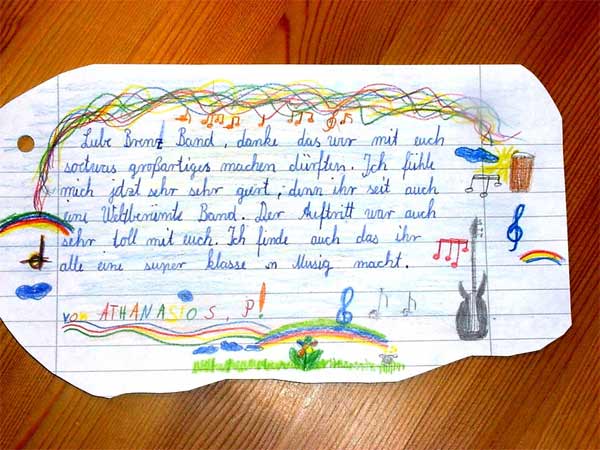 Liebe Brenz Band, danke das wir mit euch
soetwas großartiges machen dürften. Ich fühle
mich jetzt sehr sehr geert, denn ihr seit auch
eine Weltberümte Band. Der Auftritt war auch
sehr toll mit euch. Ich finde auch das ihr
alle eine super klasse n Musig macht.
von ATHANASIOS, P!